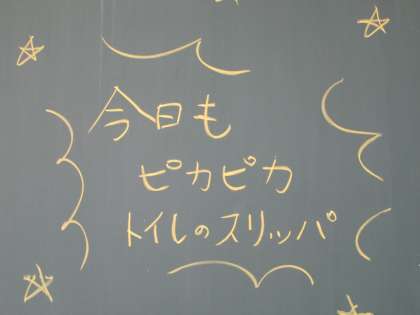 今日も
ピカピカ
トイレのスリッパ